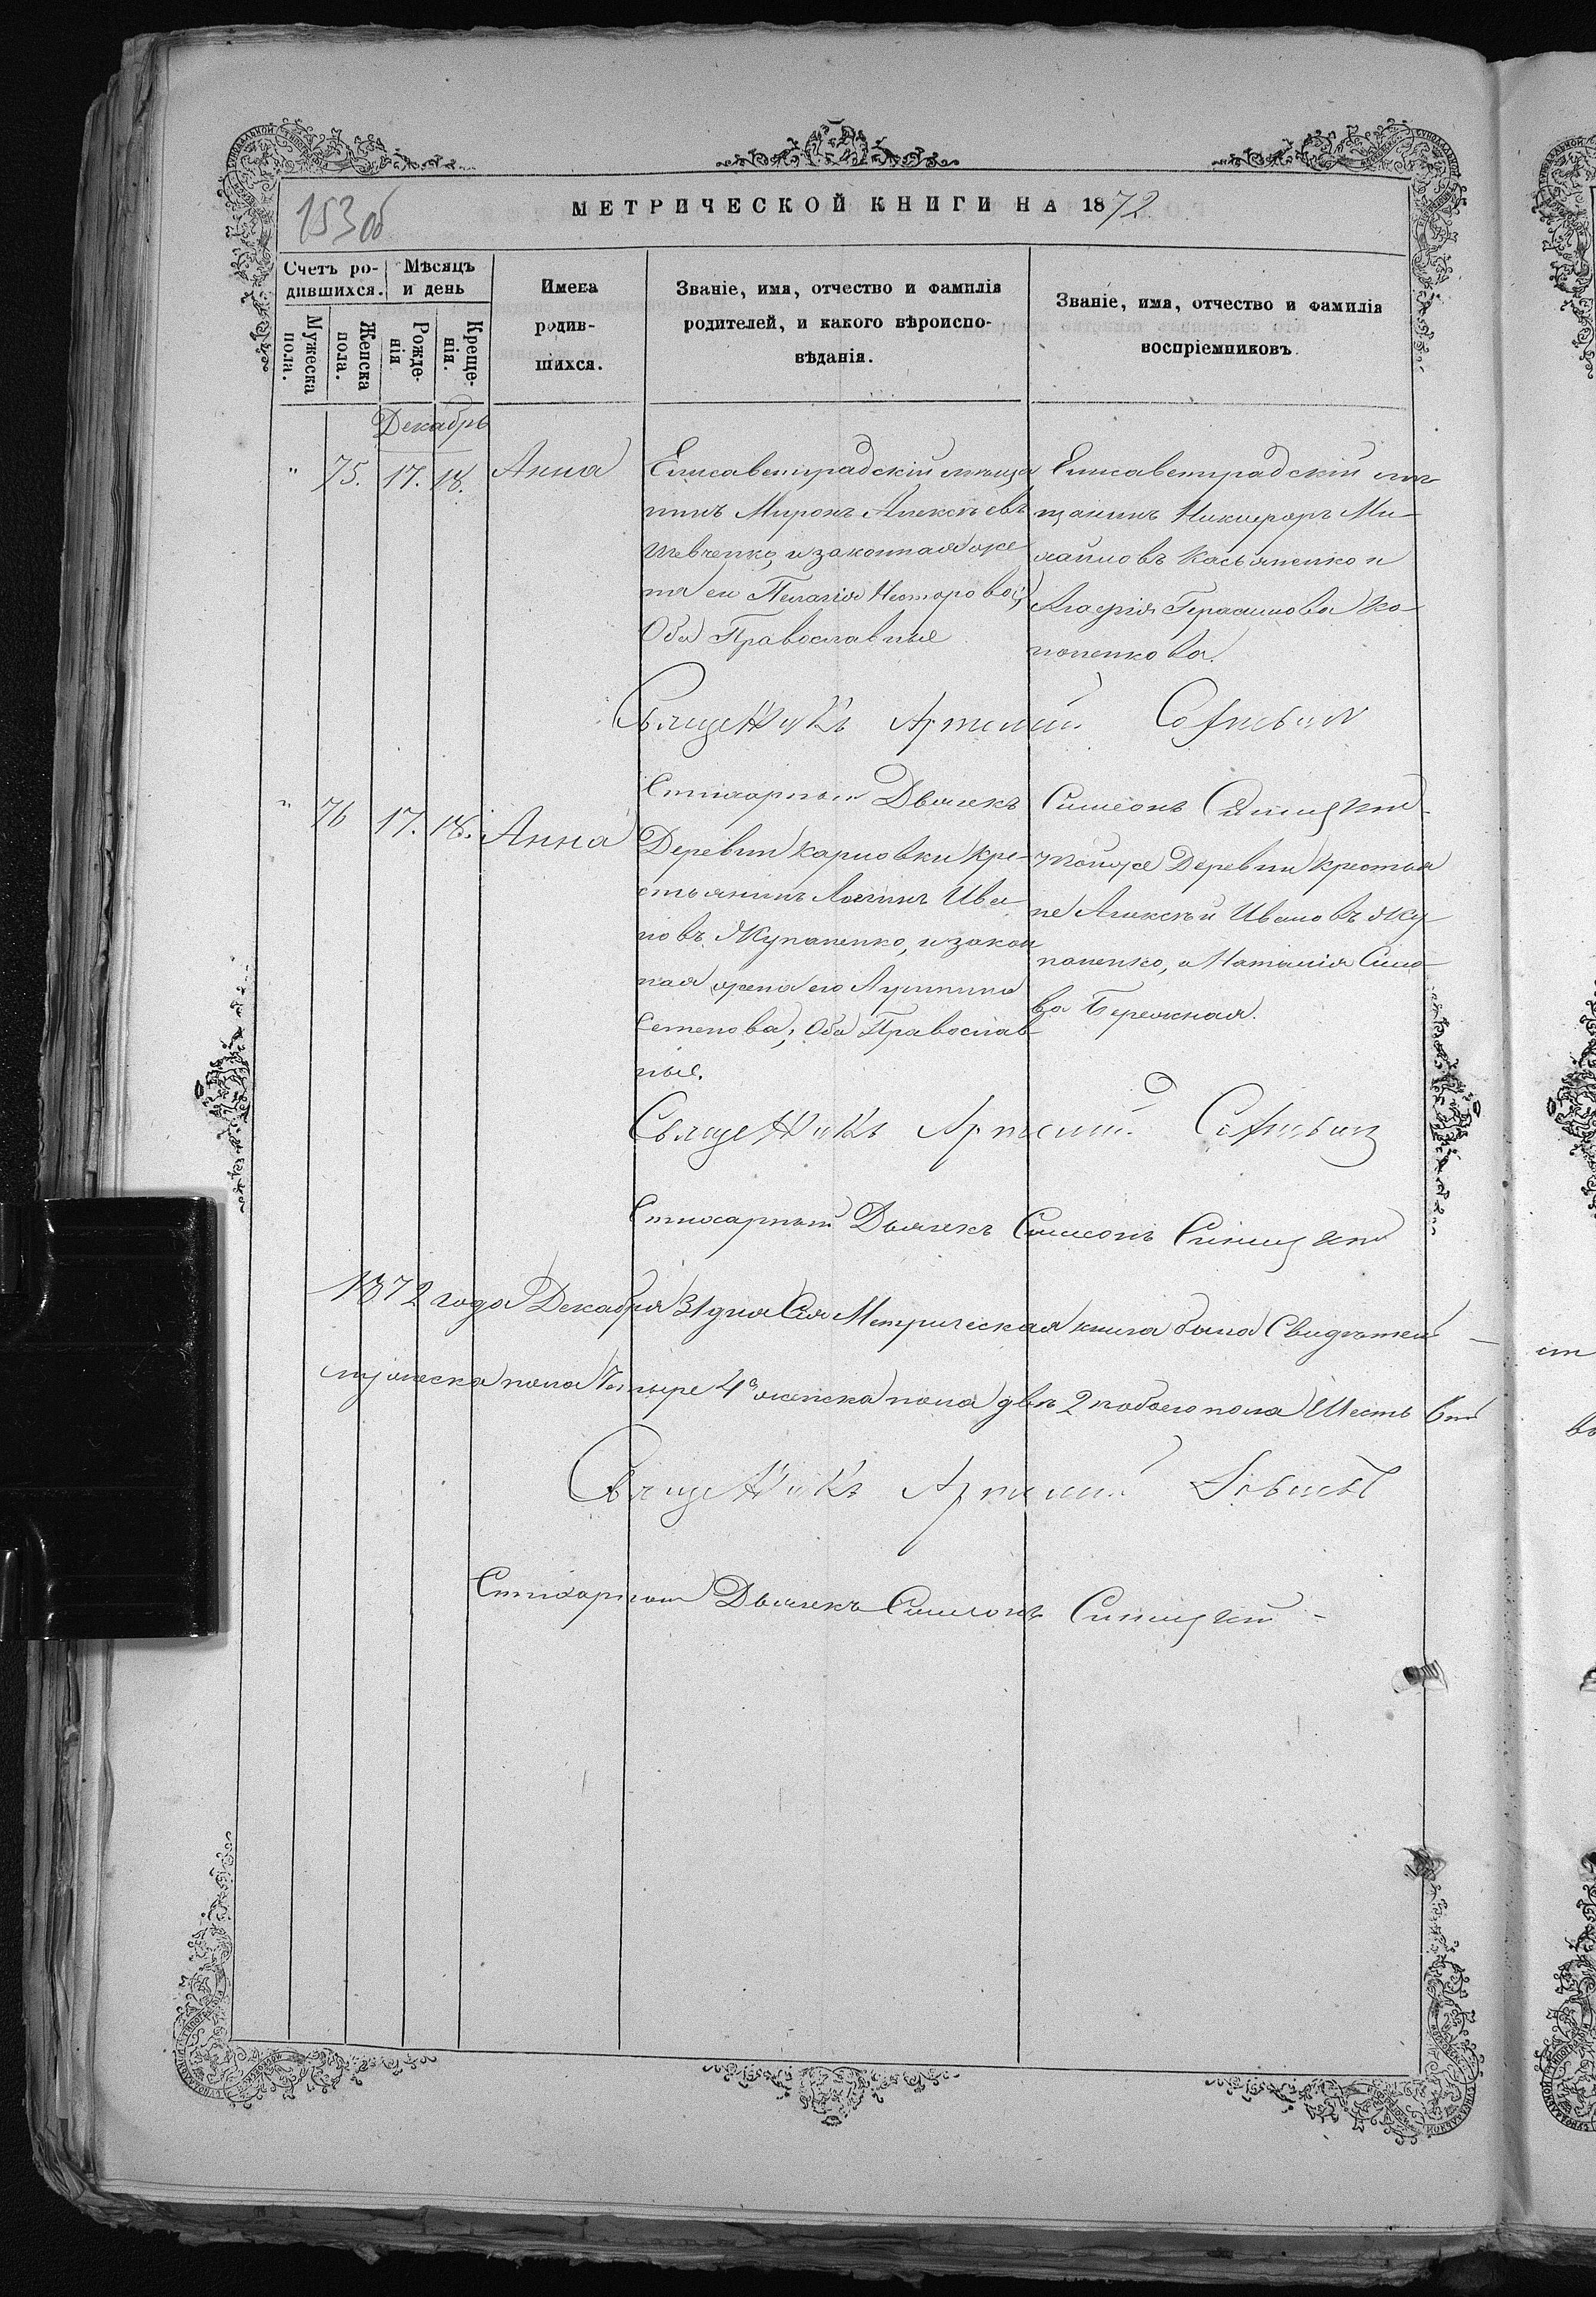 153об
МЕТРИЧЕСКОЙ КНИГИ НА 1872
Счетъ ро-
дившихся.
Мѣсяцъ
и день
Имена
родив-
шихся.
Званіе, имя, отчество и фамилія
родителей, и какого вѣроиспо-
вѣданія.
Званіе, имя, отчество и фамилія
воспріемниковъ.
Мужеска
пола.
Женска
пола.
Рожде-
нія
Креще-
нія.
Декабрь
" 75. 17. 18. Анна
Елисаветградскій мѣща
нинъ Миронъ Алексѣевъ
Шевченко, и законная же
на его Пелагія Несторова;
Оба Православные
Елисаветградскій мѣ
щанинъ Никифоръ Ми-
хайловъ Касьяненко и
Агафія Герасимова Ко-
ноненкова.
Священикъ Артемий
Стихарный Дьячекъ Симеонъ Синицкий
" 76 17. 18. Анна
Деревни Карловки Кре-
стьянинъ Логинъ Ива
новъ Жупаненко, и закон
ная жена его Лукинина
Семенова; Оба Православ
ные.
Тойже Деревни Крестья
не Алексѣй Ивановъ Жу
паненко, и Наталія Савво
ва Бережная.
Священикъ Артемий
Стихарный Дьячекъ Симеонъ Синицкий
1872 года Декабря 31 дня Сия Метрическая книга была Свидѣтел
мужеска пола Четыре 4, женска пола двѣ 2 и обоего пола Шесть 6
Священикъ Артемий
Стихарный Дьячекъ Симеонъ Синицкий